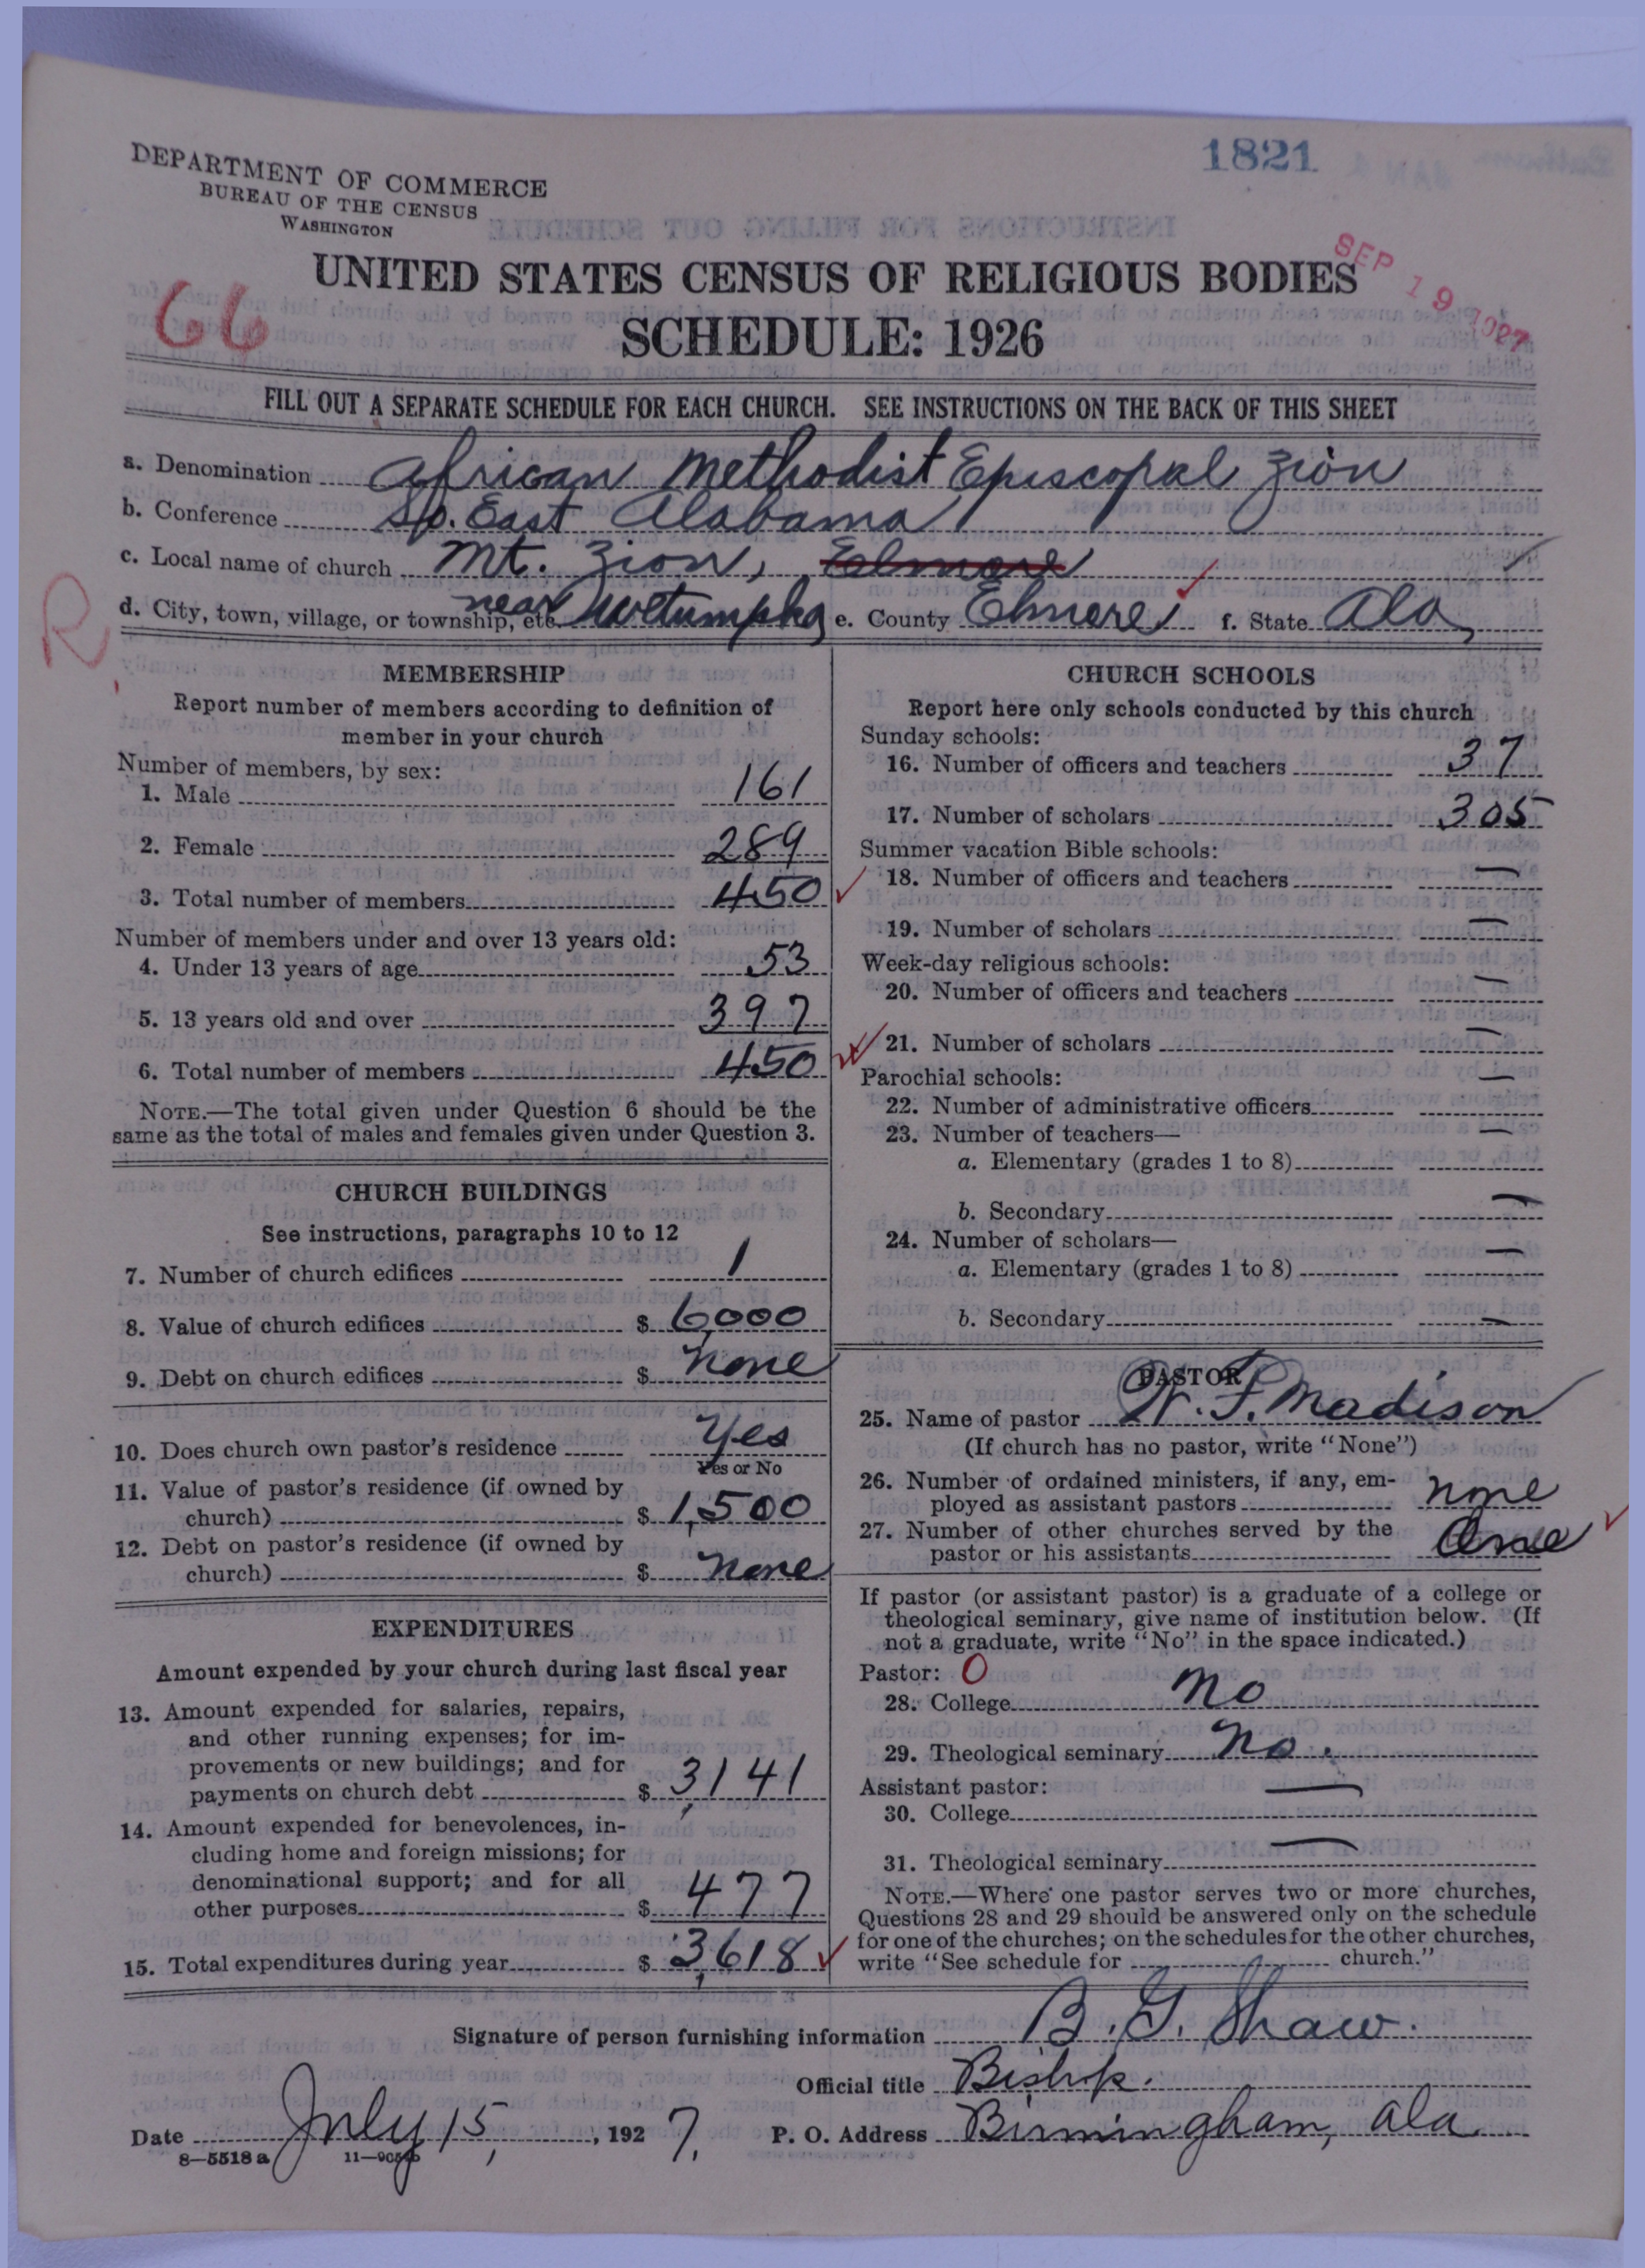 1821
DEPARTMENT OF COMMERCE
BUREAU OF THE CENSUS
WASHINGTON
SEP 19 1927
UNITED STATES CENSUS OF RELIGIOUS BODIES
66
SCHEDULE: 1926
FILL OUT A SEPARATE SCHEDULE FOR EACH CHURCH. SEE INSTRUCTIONS ON THE BACK OF THIS SHEET
a. Denomination African Methodist Episcopal Zion
b. Conference So. East Alabama
c. Local name of church Mt. Zion, Elmore
R
d. City, town, village, or township, etc. near Wetumpka e. County Elmore f. State Ala,
MEMBERSHIP
Report number of members according to definition of
member in your church
Number of members, by sex:
1. Male 161
2. Female 289
3. Total number of members 450
Number of members under and over 13 years old:
4. Under 13 years of age 53
5. 13 years old and over 397
6. Total number of members 450
NOTE.—The total given under Question 6 should be the
same as the total of males and females given under Question 3.
CHURCH BUILDINGS
See instructions, paragraphs 10 to 12
7. Number of church edifices 1
8. Value of church edifices $ 6,000
9. Debt on church edifices $ none
10. Does church own pastor's residence Yes
Yes or No
11. Value of pastor's residence (if owned by
church) $ 1,500
12. Debt on pastor's residence (if owned by
church) $ none
EXPENDITURES
Amount expended by your church during last fiscal year
13. Amount expended for salaries, repairs,
and other running expenses; for im-
provements or new buildings; and for
payments on church debt $ 3,141
14. Amount expended for benevolences, in-
cluding home and foreign missions; for
denominational support; and for all
other purposes $ 477
15. Total expenditures during year $ 3,618
CHURCH SCHOOLS
Report here only schools conducted by this church
Sunday schools:
16. Number of officers and teachers 37
17. Number of scholars 305
Summer vacation Bible schools:
18. Number of officers and teachers —
19. Number of scholars —
Week-day religious schools:
20. Number of officers and teachers —
21. Number of scholars —
Parochial schools:
22. Number of administrative officers —
23. Number of teachers—
a. Elementary (grades 1 to 8) —
b. Secondary —
24. Number of scholars—
a. Elementary (grades 1 to 8) —
b. Secondary —
PASTOR
25. Name of pastor W. F. Madison
(If church has no pastor, write "None")
26. Number of ordained ministers, if any, em-
ployed as assistant pastors none
27. Number of other churches served by the
pastor or his assistants One
If pastor (or assistant pastor) is a graduate of a college or
theological seminary, give name of institution below. (If
not a graduate, write "No" in the space indicated.)
Pastor: 0
28. College No
29. Theological seminary No.
Assistant pastor:
30. College —
31. Theological seminary —
NOTE.—Where one pastor serves two or more churches,
Questions 28 and 29 should be answered only on the schedule
for one of the churches; on the schedules for the other churches,
write "See schedule for church."
Signature of person furnishing information B. G. Shaw.
Official title Bishop.
Date July 15, 1927. P. O. Address Birmingham, Ala
8—5518 a